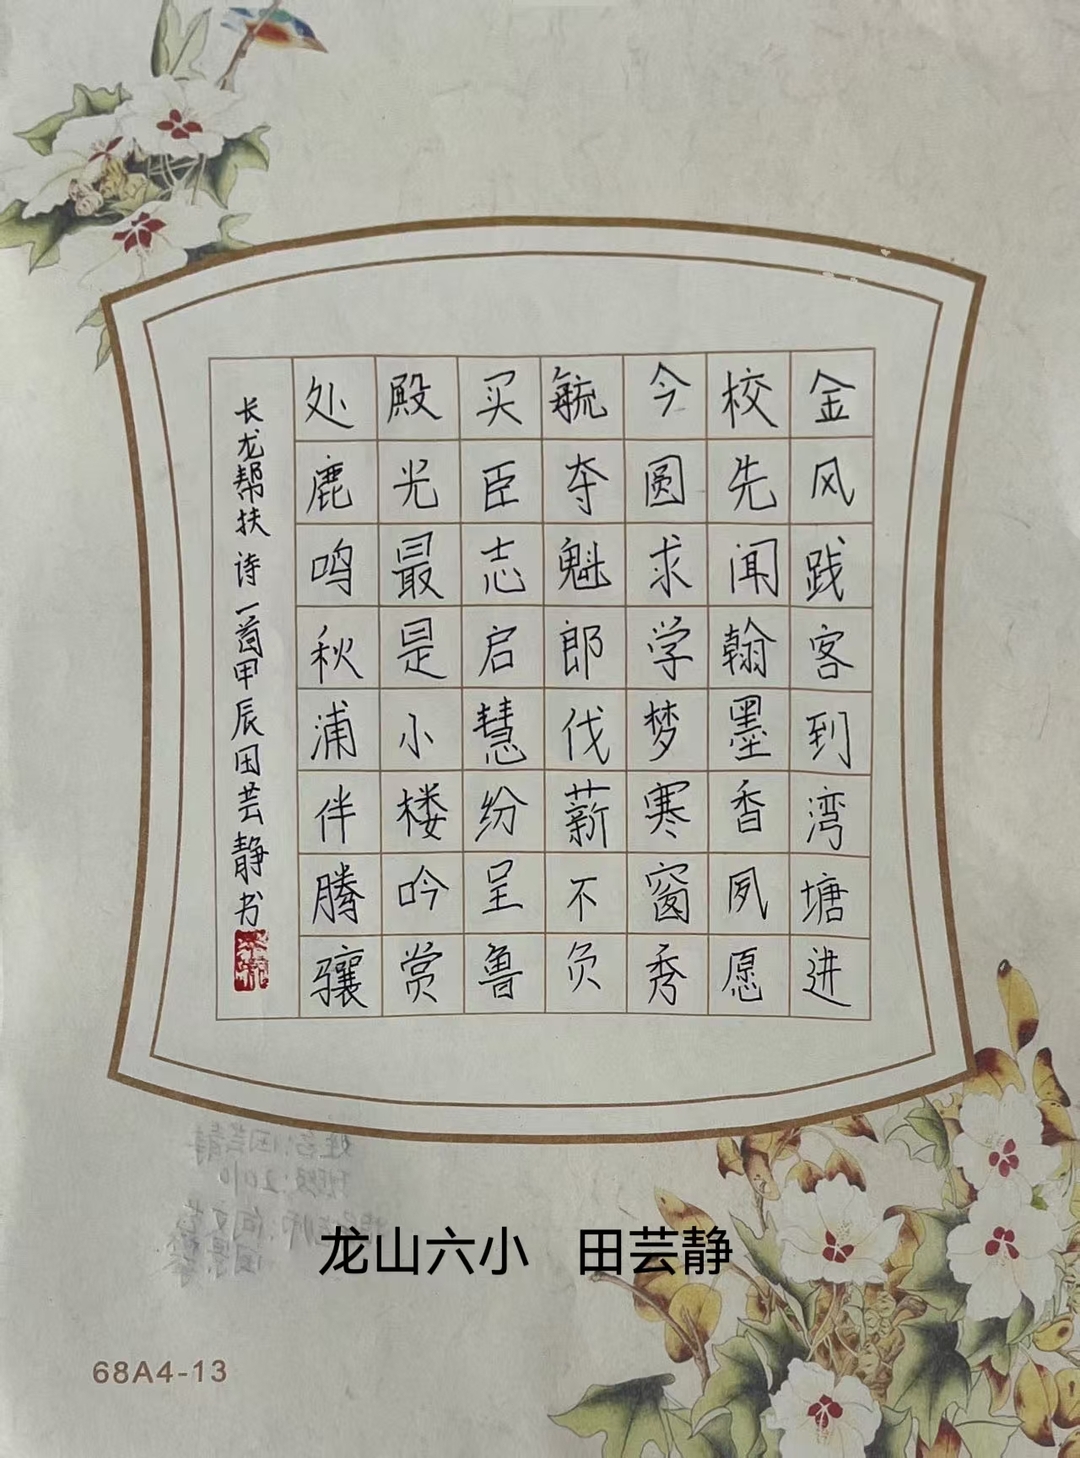 金风践客到湾塘进
校先闻翰墨香夙愿
今圆求学梦寒窗秀
毓夺魁郎伐薪不负
买臣志启慧纷呈鲁
殿光最是小楼吟赏
处鹿鸣秋浦伴腾骧
长龙帮扶诗一首甲辰田芸静书
龙山六小 田芸静
68A4-13